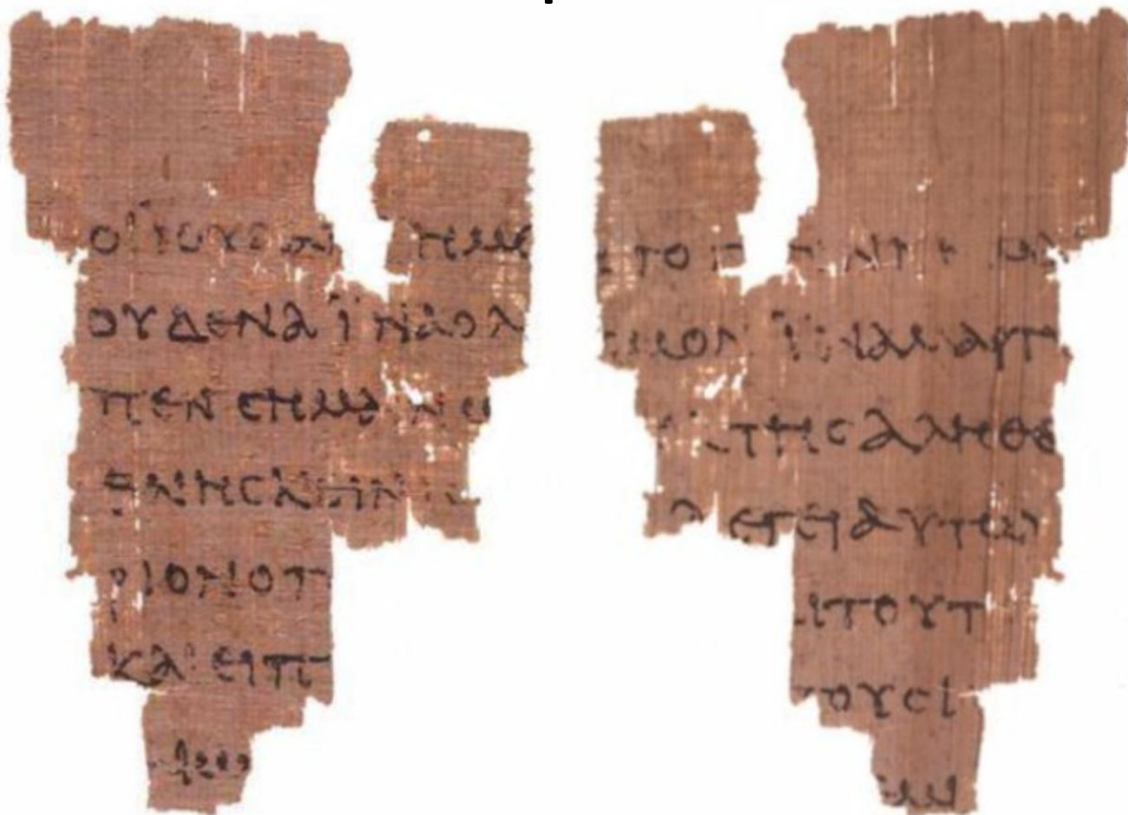 ΟΙΙΟΥΔΑΙ ΗΜΕ
ΟΥΔΕΝΑΪΝΑΟΛ
ΠΕΝCΗΜΑΙΝΩ
ΘΝΗCΚΕΙΝ
ΡΙΟΝΟΠ
ΚΑΙΕΙΠ
ΤΟ
CΜΟΝΪΝΑΜΑΡΤ
ΤΗCΑΛΗΘΕ
ΛΕΓΕΙΑΥΤΩ
ΙΤΟΥΤ
ΤΟΥCΙ